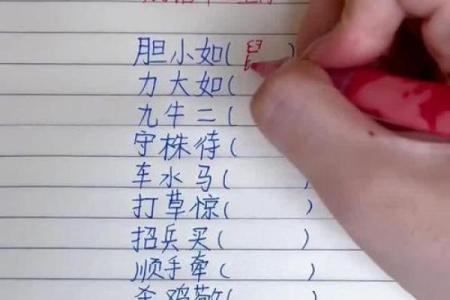 胆小如( )
力大如(
九牛二(
守株待(
车水马( )
打草惊( )
招兵买( )
顺手牵( )
杀鸡敬(